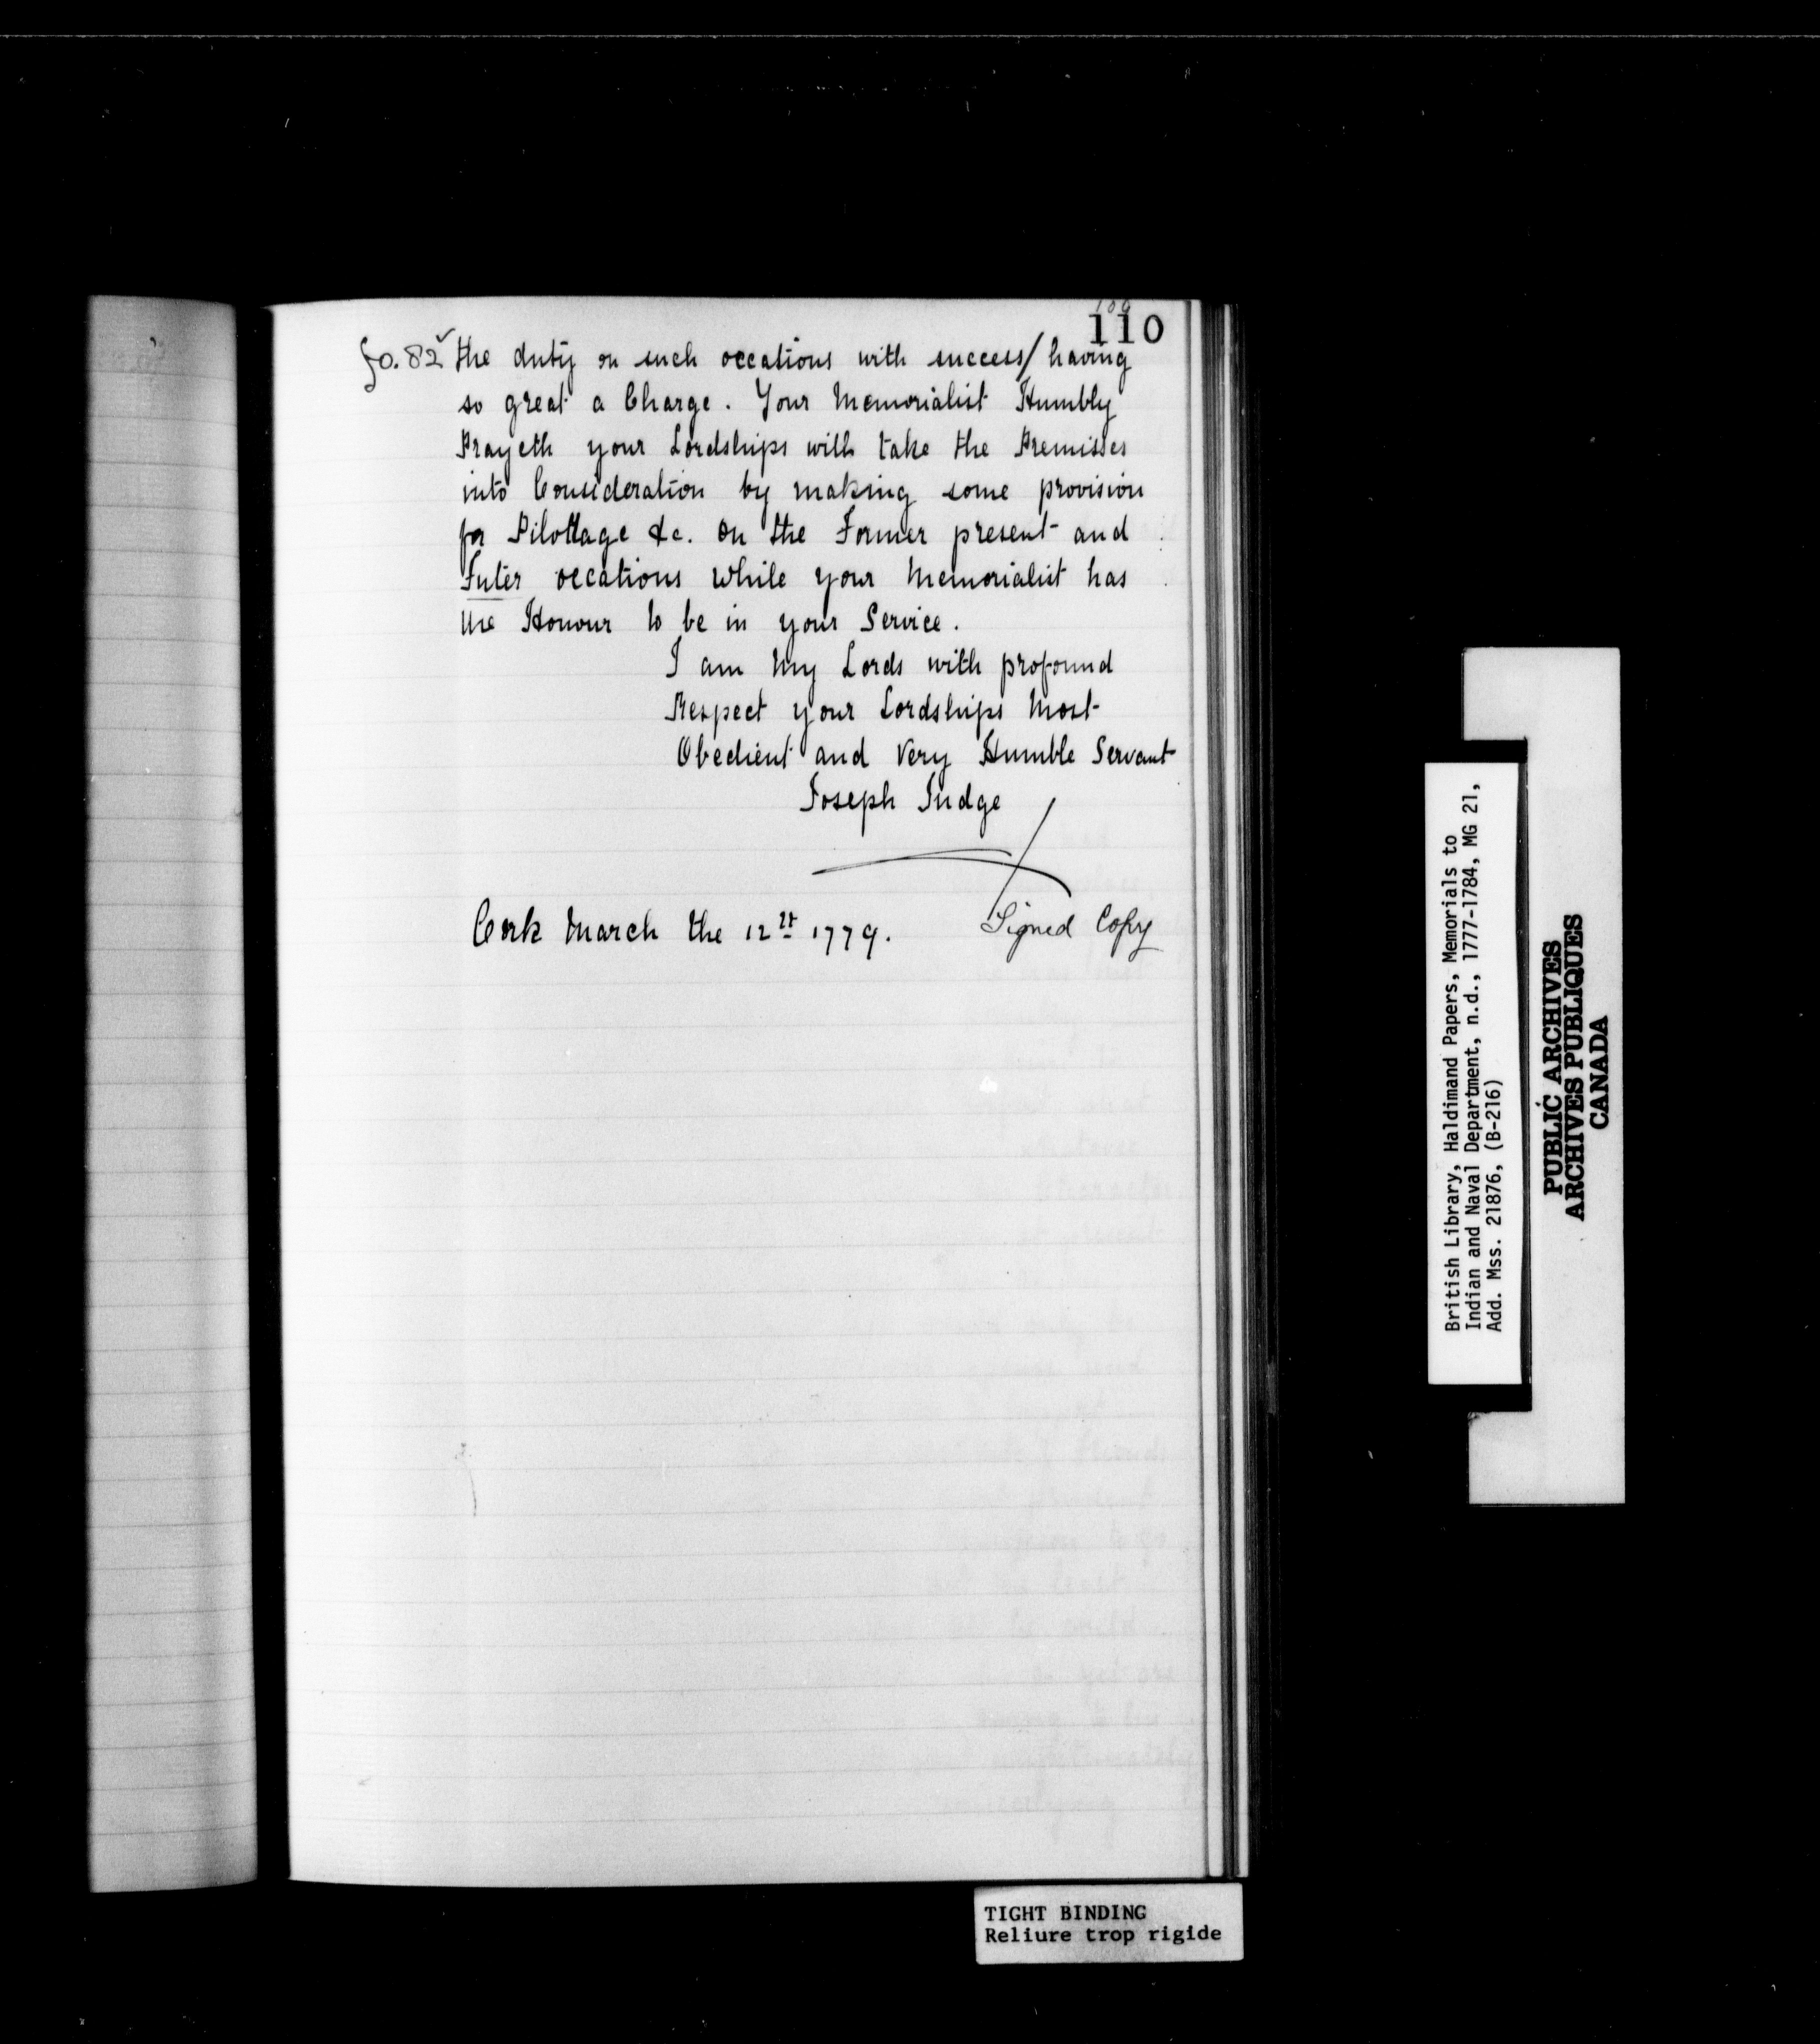 110
fo. 82 the duty on such occations with success/having
so great a Charge. Your Memorialist Humbly
Prayeth your Lordships will take the Premisses
into Consideration by making some provision
for Pilottage &c. on the Former present and
Futer occations while your Memorialist has
the Honour to be in your Service.
I am My Lords with profound
Respect your Lordships Most
Obedient and Very Humble Servant
Joseph Judge
Cork March the 12th 1779.
Signed Copy
British Library, Haldimand Papers, Memorials to
Indian and Naval Department, n.d., 1777-1784, MG 21,
Add. Mss. 21876, (B-216)
PUBLIC ARCHIVES
ARCHIVES PUBLIQUES
CANADA
TIGHT BINDING
Reliure trop rigide